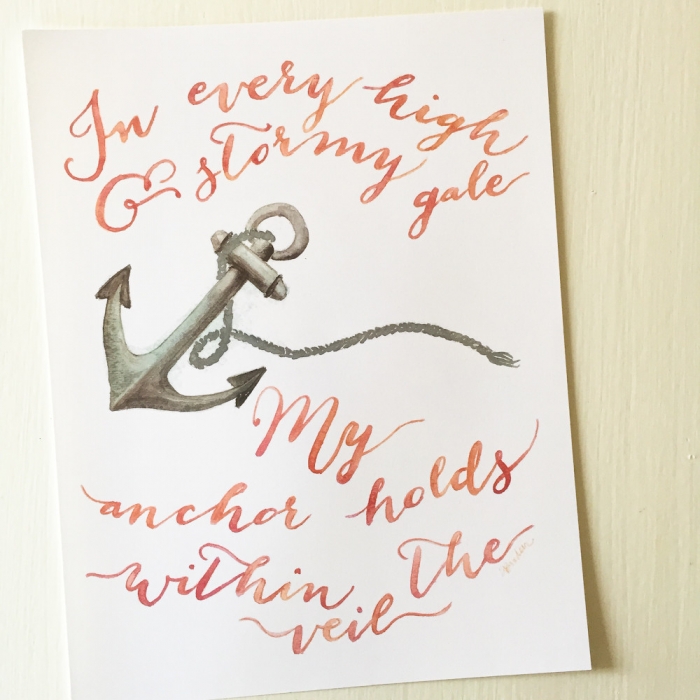 In every high
& stormy gale
My
anchor holds
within the
veil